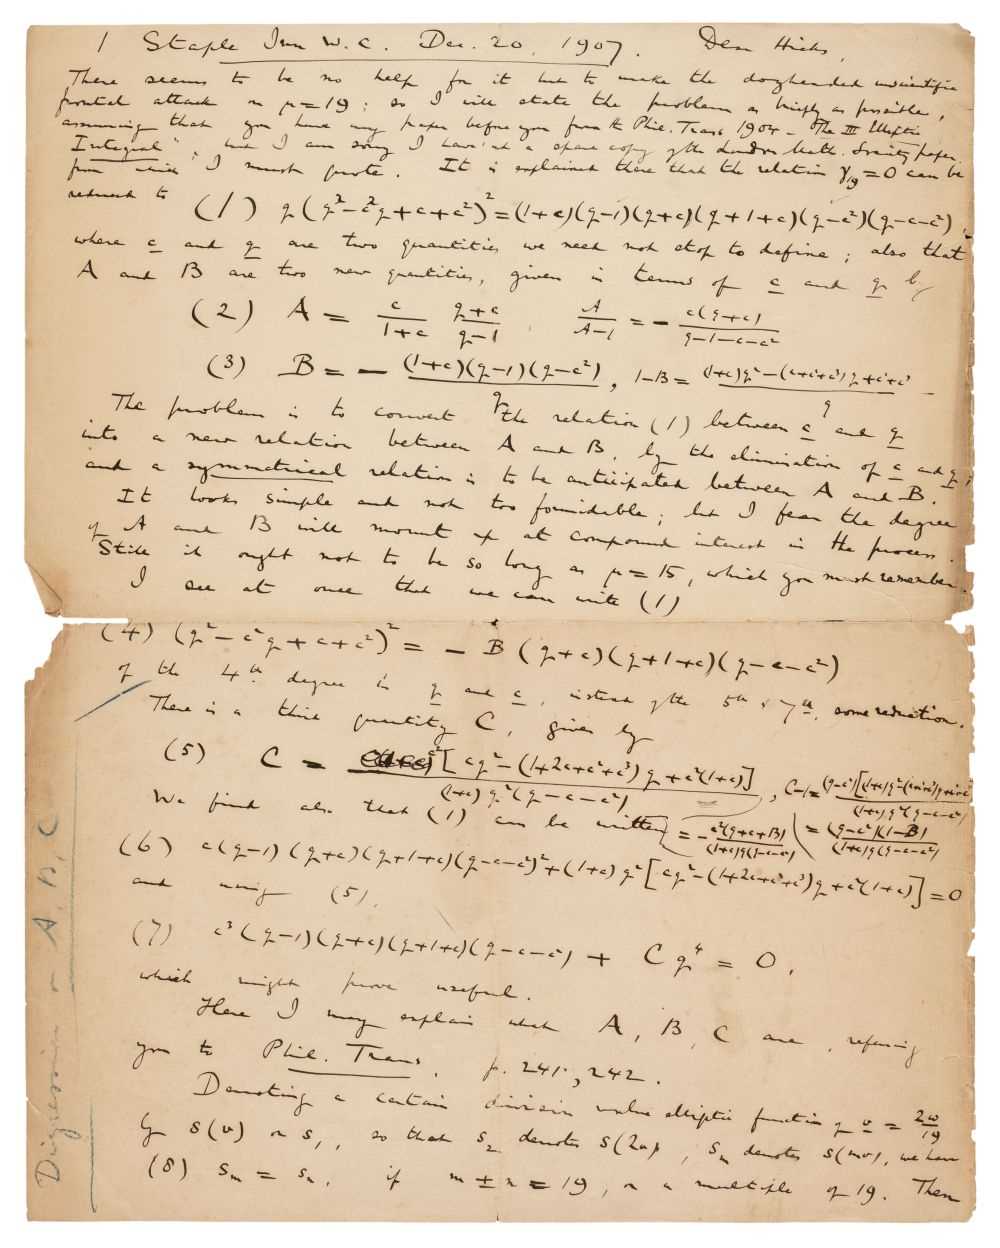 1 Staple Inn W.C. Dec. 20, 1907. Dear Hicks,
There seems to be no help for it but to make the dogheaded unscientific
frontal attack on μ=19; so I will state the problem as briefly as possible,
assuming that you have my paper before you from the Phil. Trans 1904 - "The III Elliptic
Integral"; but I am sorry I haven't a spare copy of the London Math. Society paper
from which I must quote. It is explained there that the relation γ₁₉=0 can be
reduced to (1) q(q²-c²q+c+c²)²=(1+c)(q-1)(q+c)(q+1+c)(q-c²)(q-c-c²),
where c and q are two quantities we need not stop to define; also that
A and B are two new quantities, given in terms of c and q by
(2) A = c/(1+c) (q+c)/(q-1) A/(A-1) = - c(q+c)/(q-1-c-c²)
(3) B = - (1+c)(q-1)(q-c²)/q, 1-B = ((1+c)q²-(c+c²+c³)q+c²+c³)/q
The problem is to convert the relation (1) between c and q
into a new relation between A and B, by the elimination of c and q;
and a symmetrical relation is to be anticipated between A and B.
It looks simple and not too formidable; but I fear the degree
of A and B will mount up at compound interest in the process.
Still it ought not to be so long as μ=15, which you must remember.
I see at once that we can write (1)
(4) (q²-c²q+c+c²)² = - B(q+c)(q+1+c)(q-c-c²)
of the 4th degree in q and c, instead of the 5th & 7th, some reduction.
There is a third quantity C, given by
(5) C = c²[cq²-(1+2c+c²+c³)q+c²(1+c)]/((1+c)q²(q-c-c²)), C-1=(q-c²)[(1+c)q²-(c+c²+c³)q+c²+c³]/((1+c)q²(q-c-c²))
We find also that (1) can be written = -c²(q+c+B)/((1+c)q(q-c-c²)) = (q-c²)(1-B)/((1+c)q(q-c-c²))
(6) c(q-1)(q+c)(q+1+c)(q-c-c²)²+(1+c)q²[cq²-(1+2c+c²+c³)q+c²(1+c)]=0
and using (5),
(7) c³(q-1)(q+c)(q+1+c)(q-c-c²) + Cq⁴ = 0,
which might prove useful.
Here I may explain what A, B, C are, referring
you to Phil. Trans, p. 241, 242.
Denoting a certain division value elliptic function of v = 2ω/19
by s(v) or s₁, so that s₂ denotes s(2v), sₘ denotes s(mv), we have
(8) sₘ = sₙ, if m ± n = 19, or a multiple of 19. Then
Digression on A, B, C